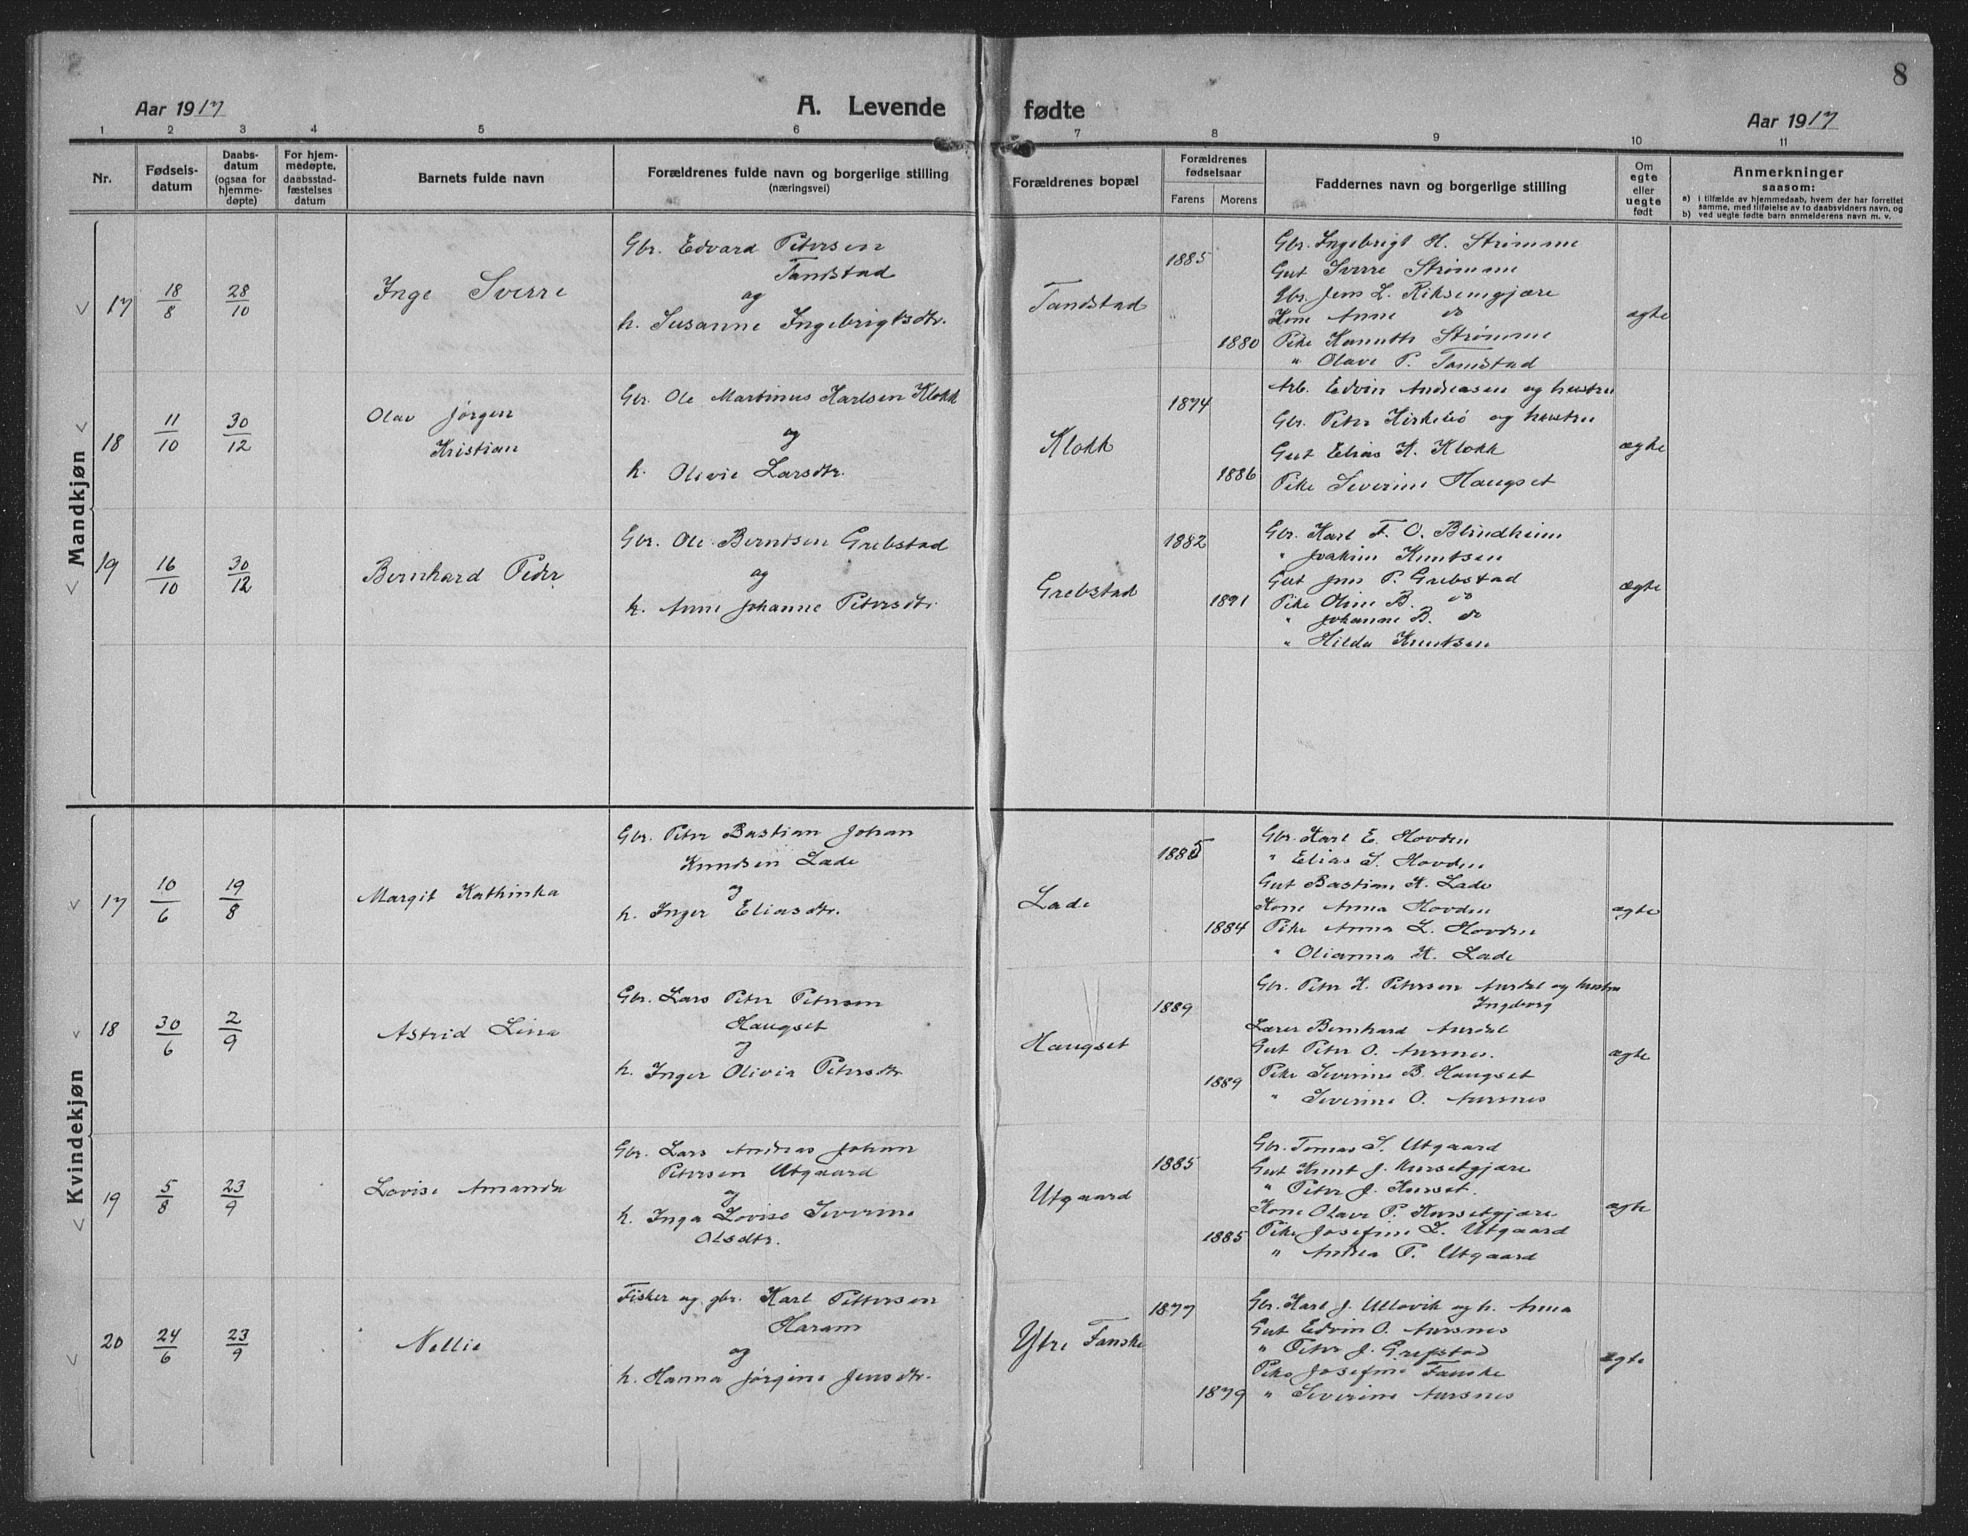 8
Aar 1917
A. Levende fødte
Aar 1917
1 2 3 4 5 6 7 8 9 10 11
Nr.
Fødselsdatum
Daabsdatum (ogsaa for hjemmedøpte)
For hjemmedøpte, daabsstadfæstelses datum
Barnets fulde navn
Forældrenes fulde navn og borgerlige stilling
(næringsvei)
Forældrenes bopæl
Forældrenes fødselsaar
Farens Morens
Faddernes navn og borgerlige stilling
Om egte eller uegte født
Anmerkninger
saasom:
a) i tilfælde av hjemmedaab, hvem der har forrettet
samme, med tilføielse av to daabsvidners navn, og
b) ved uegte fødte barn anmelderens navn m. v.
Mandkjøn
17
18/8
28/10
Inge Sverre
Gbr. Edvard Petersen
Tandstad
og
h. Susanne Ingebrigtsdtr.
Tandstad
1885
1880
Gbr. Ingebrigt H. Strømme
Gut Sverre Strømme
Gbr. Jens L. Riksemgjære
Kone Anne do
Pike Hannith Strømme
" Olave P. Tandstad
ægte
18
11/10
30/12
Olav Jørgen
Kristian
Gbr. Ole Martinus Karlsen Klokk
og
h. Olivie Larsdtr.
Klokk
1874
1886
Arb. Edvin Andreasen og hustru
Gbr. Peter Kirkebø og hustru
Gut Elias K. Klokk
Pike Severine Haugset
ægte
19
16/10
30/12
Bernhard Peder
Gbr. Ole Berntsen Grebstad
og
h. Anne Johanne Petersdtr.
Grebstad
1882
1891
Gbr. Karl F. O. Blindheim
" Joakim Knutsen
Gut Jens P. Grebstad
Pike Oline B. do
" Johanne B. do
" Hilda Knutsen
ægte
Kvindekjøn
17
10/6
19/8
Margit Kathinka
Gbr. Peter Bastian Johan
Knudsen Lade
og
h. Inger Eliasdtr.
Lade
1885
1884
Gbr. Karl E. Hovden
" Elias S. Hovden
Gut Bastian K. Lade
Kone Anna Hovden
Pike Anna L. Hovden
" Olianna K. Lade
ægte
18
30/6
2/9
Astrid Lina
Gbr. Lars Peter Petersen
Haugset
og
h. Inger Olivia Petersdtr.
Haugset
1889
1889
Gbr. Peter K. Petersen Aurdal og hustru
Ingeborg
Lærer Bernhard Aurdal
Gut Peter O. Aursnes.
Pike Severine B. Haugset
" Severine O. Aursnes
ægte
19
5/8
23/9
Lovise Amanda
Gbr. Lars Andreas Johan
Petersen Utgaard
og
h. Inga Lovise Severine
Olsdtr.
Utgaard
1885
1885
Gbr. Tomas S. Utgaard
Gut Knut J. Kursetgjære
" Peter J. Kurset.
Kone Olave P. Kursetgjære
Pike Josefine L. Utgaard
" Andrea P. Utgaard
ægte
20
24/6
23/9
Nellie
Fisker og gbr. Karl Pettersen
Haram
og
h. Hanna Jørgine Jensdtr.
Ytre Fanske
1877
1879
Gbr. Karl J. Ullavik og h. Anna
Gut Edvin O. Aursnes
" Peter J. Grepstad
Pike Josefine Fanske
" Severine Aursnes
ægte